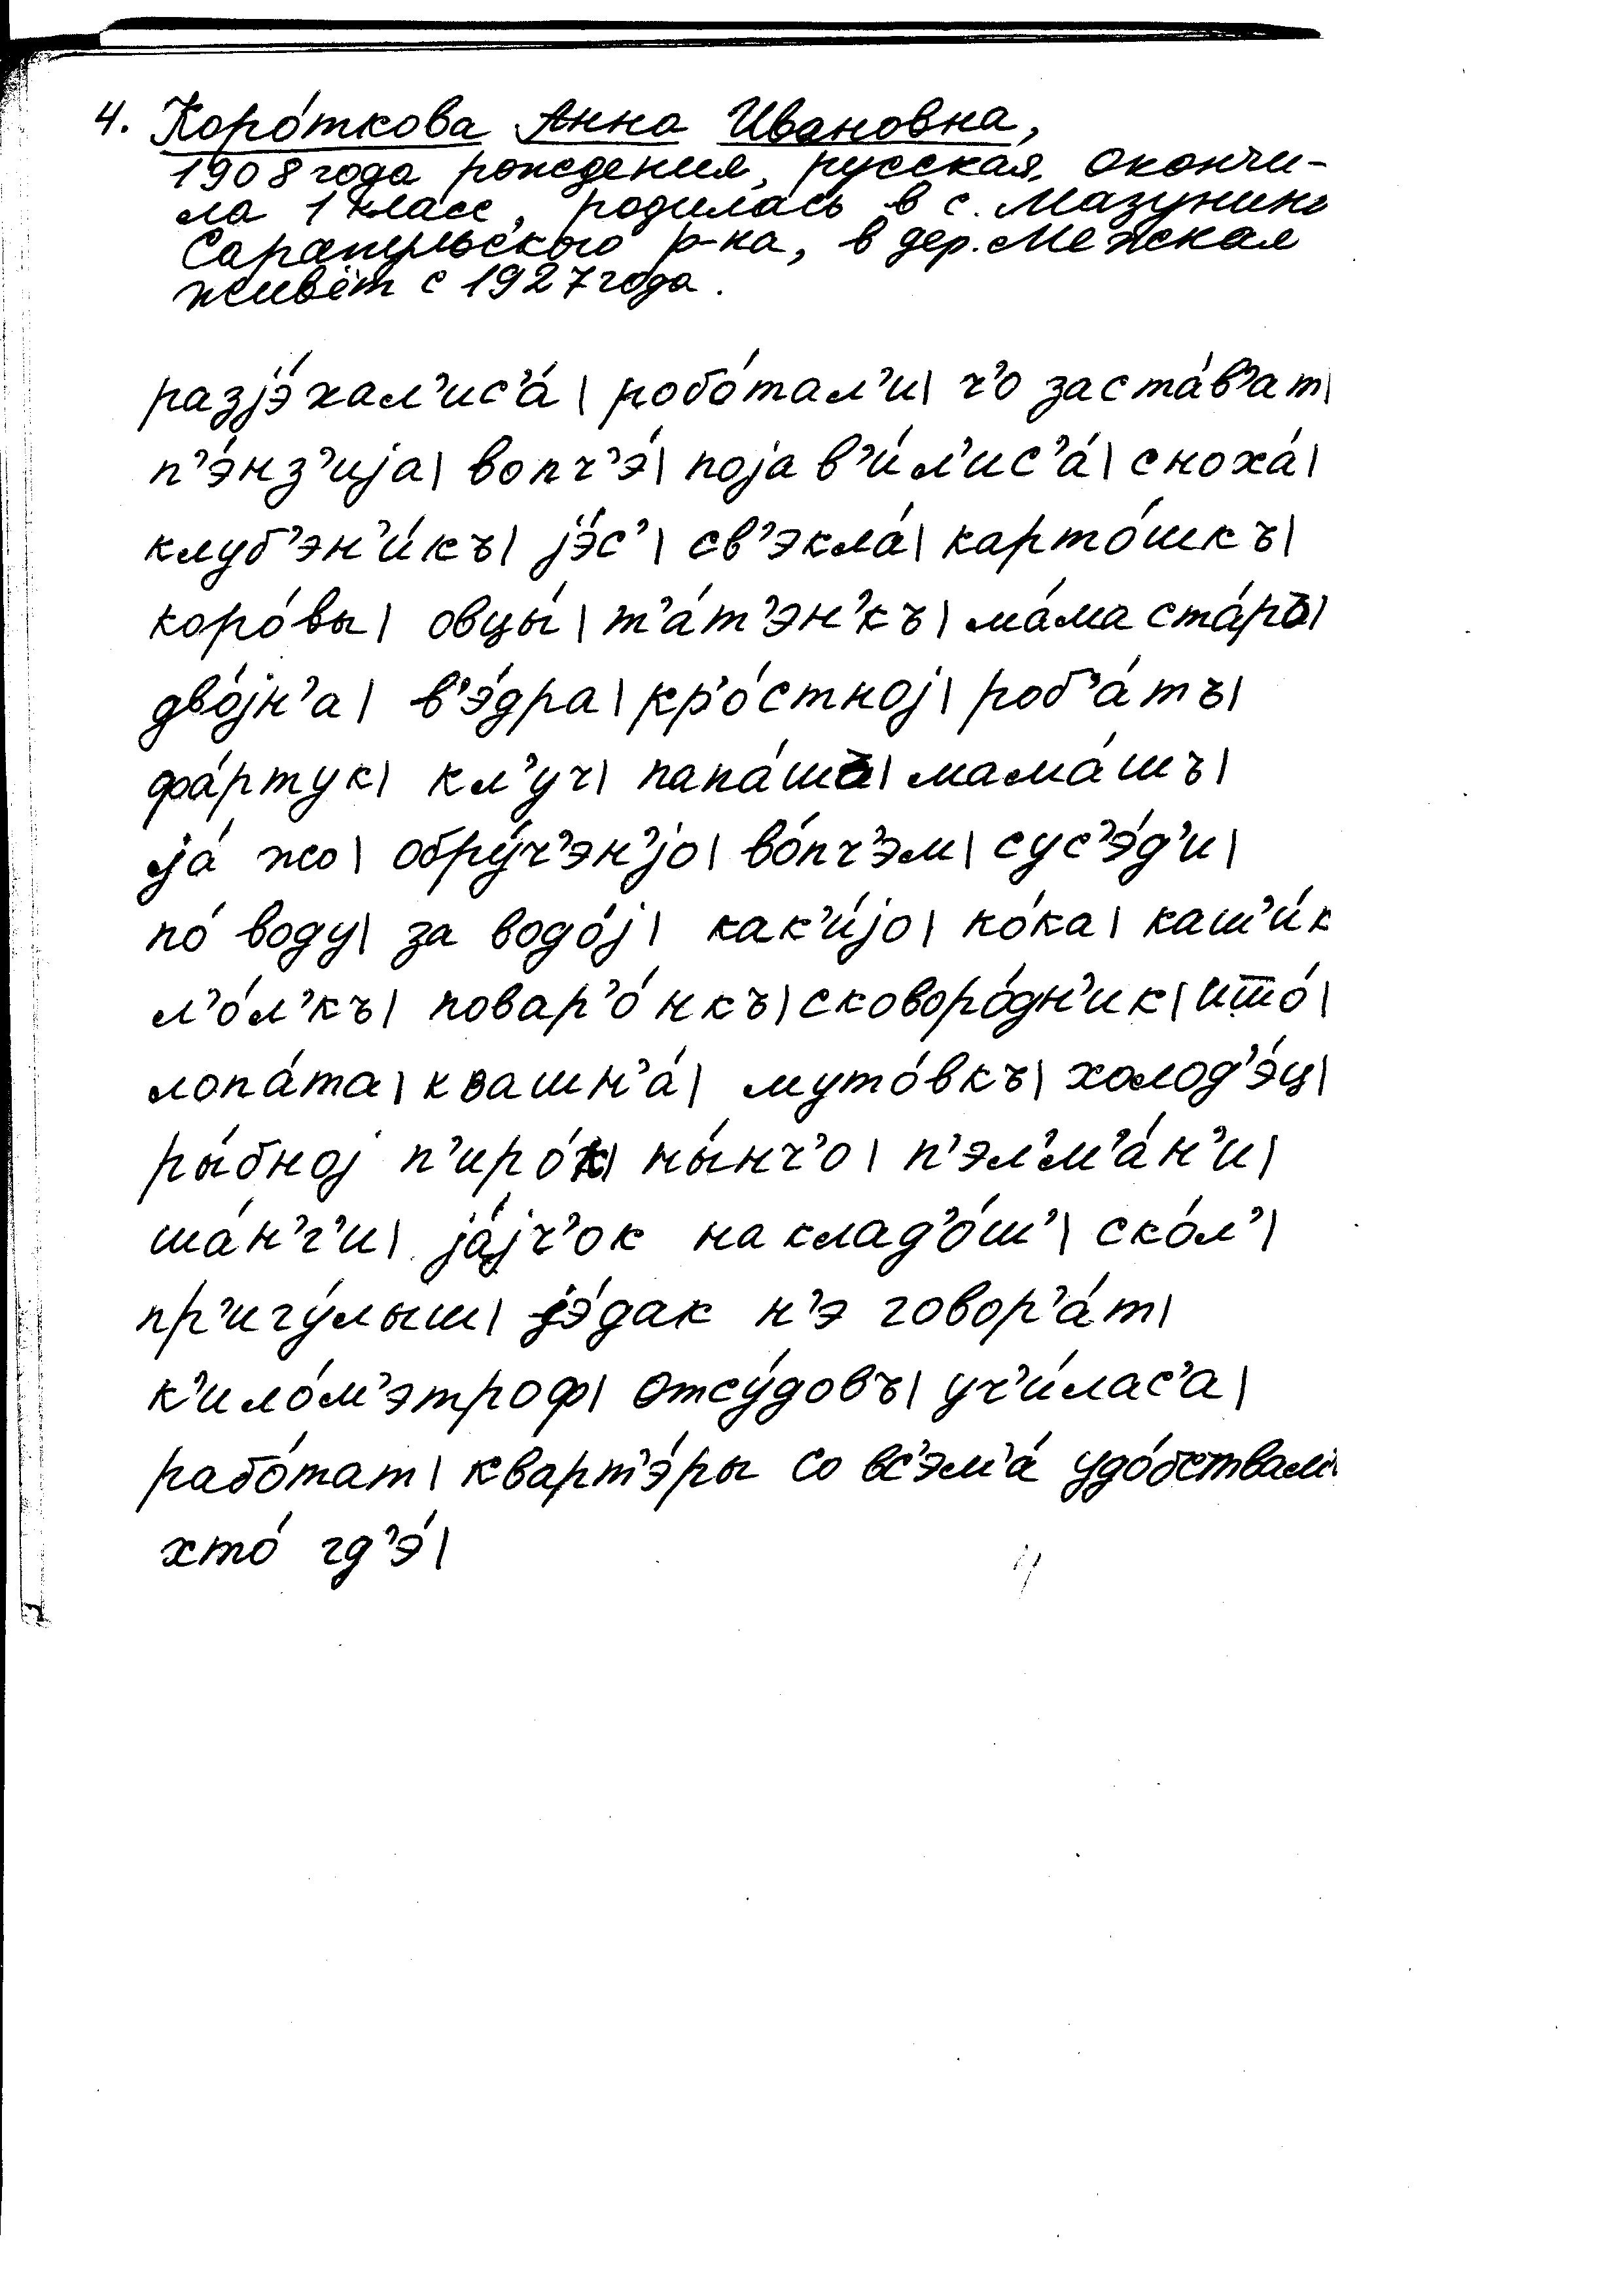 4. Коро́ткова Анна Ивановна,
1908 года рождения, русская, окончи-
ла 1 класс, родилась в с. Мазунино
Сарапульского р-на, в дер. Межная
живёт с 1927 года.
разjэ́хал’ис’а́ | робо́тал’и | ч’о заста́в’ат |
п’э́нз’иjа | вопч’э́ | поjав’и́л’ис’а́ | сноха́ |
клуб’эн’и́къ | jэ́с’ | св’экла́ | карто́шкъ |
коро́вы | овцы́ | т’а́т’эн’къ | ма́ма ста́ръ |
дво́jн’а | в’э́дра | кр’о́стноj | роб’а́тъ |
фа́ртук | кл’уч | папа́шъ | мама́шъ |
jа́ жо | обру́ч’эн’jо | во́пч’эм | сус’э́д’и |
по́ воду | за водо́j | как’и́jо | ко́ка | каш’и́к
л’о́л’къ | повар’о́нкъ | сковоро́дн’ик | што́ |
лопа́та | квашн’а́ | муто́вкъ | холод’э́ц |
ры́бноj п’иро́к | ны́нч’о | п’эл’м’а́н’и |
ша́н’г’и | jа́jч’ок наклад’о́ш’ | ско́л’ |
пр’игу́лыш | jэ́дак н’э говор’а́т |
к’ило́м’этроф | отсу́довъ | уч’и́лас’а |
рабо́тат | кварт’э́ры со вс’эм’а́ удо́бствам’и
хто́ гд’э́ |